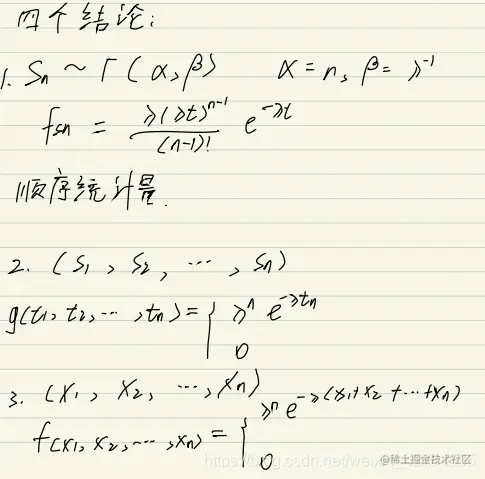 四个结论:
1. Sn ~ Γ(α, β)  α = n, β = λ⁻¹
fsn = λ(λt)ⁿ⁻¹ / (n-1)! e^(-λt)
顺序统计量.
2. (S₁, S₂, ⋯, Sn)
g(t₁, t₂, ⋯, tn) = { λⁿ e^(-λtn)
0
3. (X₁, X₂, ⋯, Xn)
f(x₁, x₂, ⋯, xn) = { λⁿ e^(-λ(x₁+x₂+⋯+xn))
0
@稀土掘金技术社区